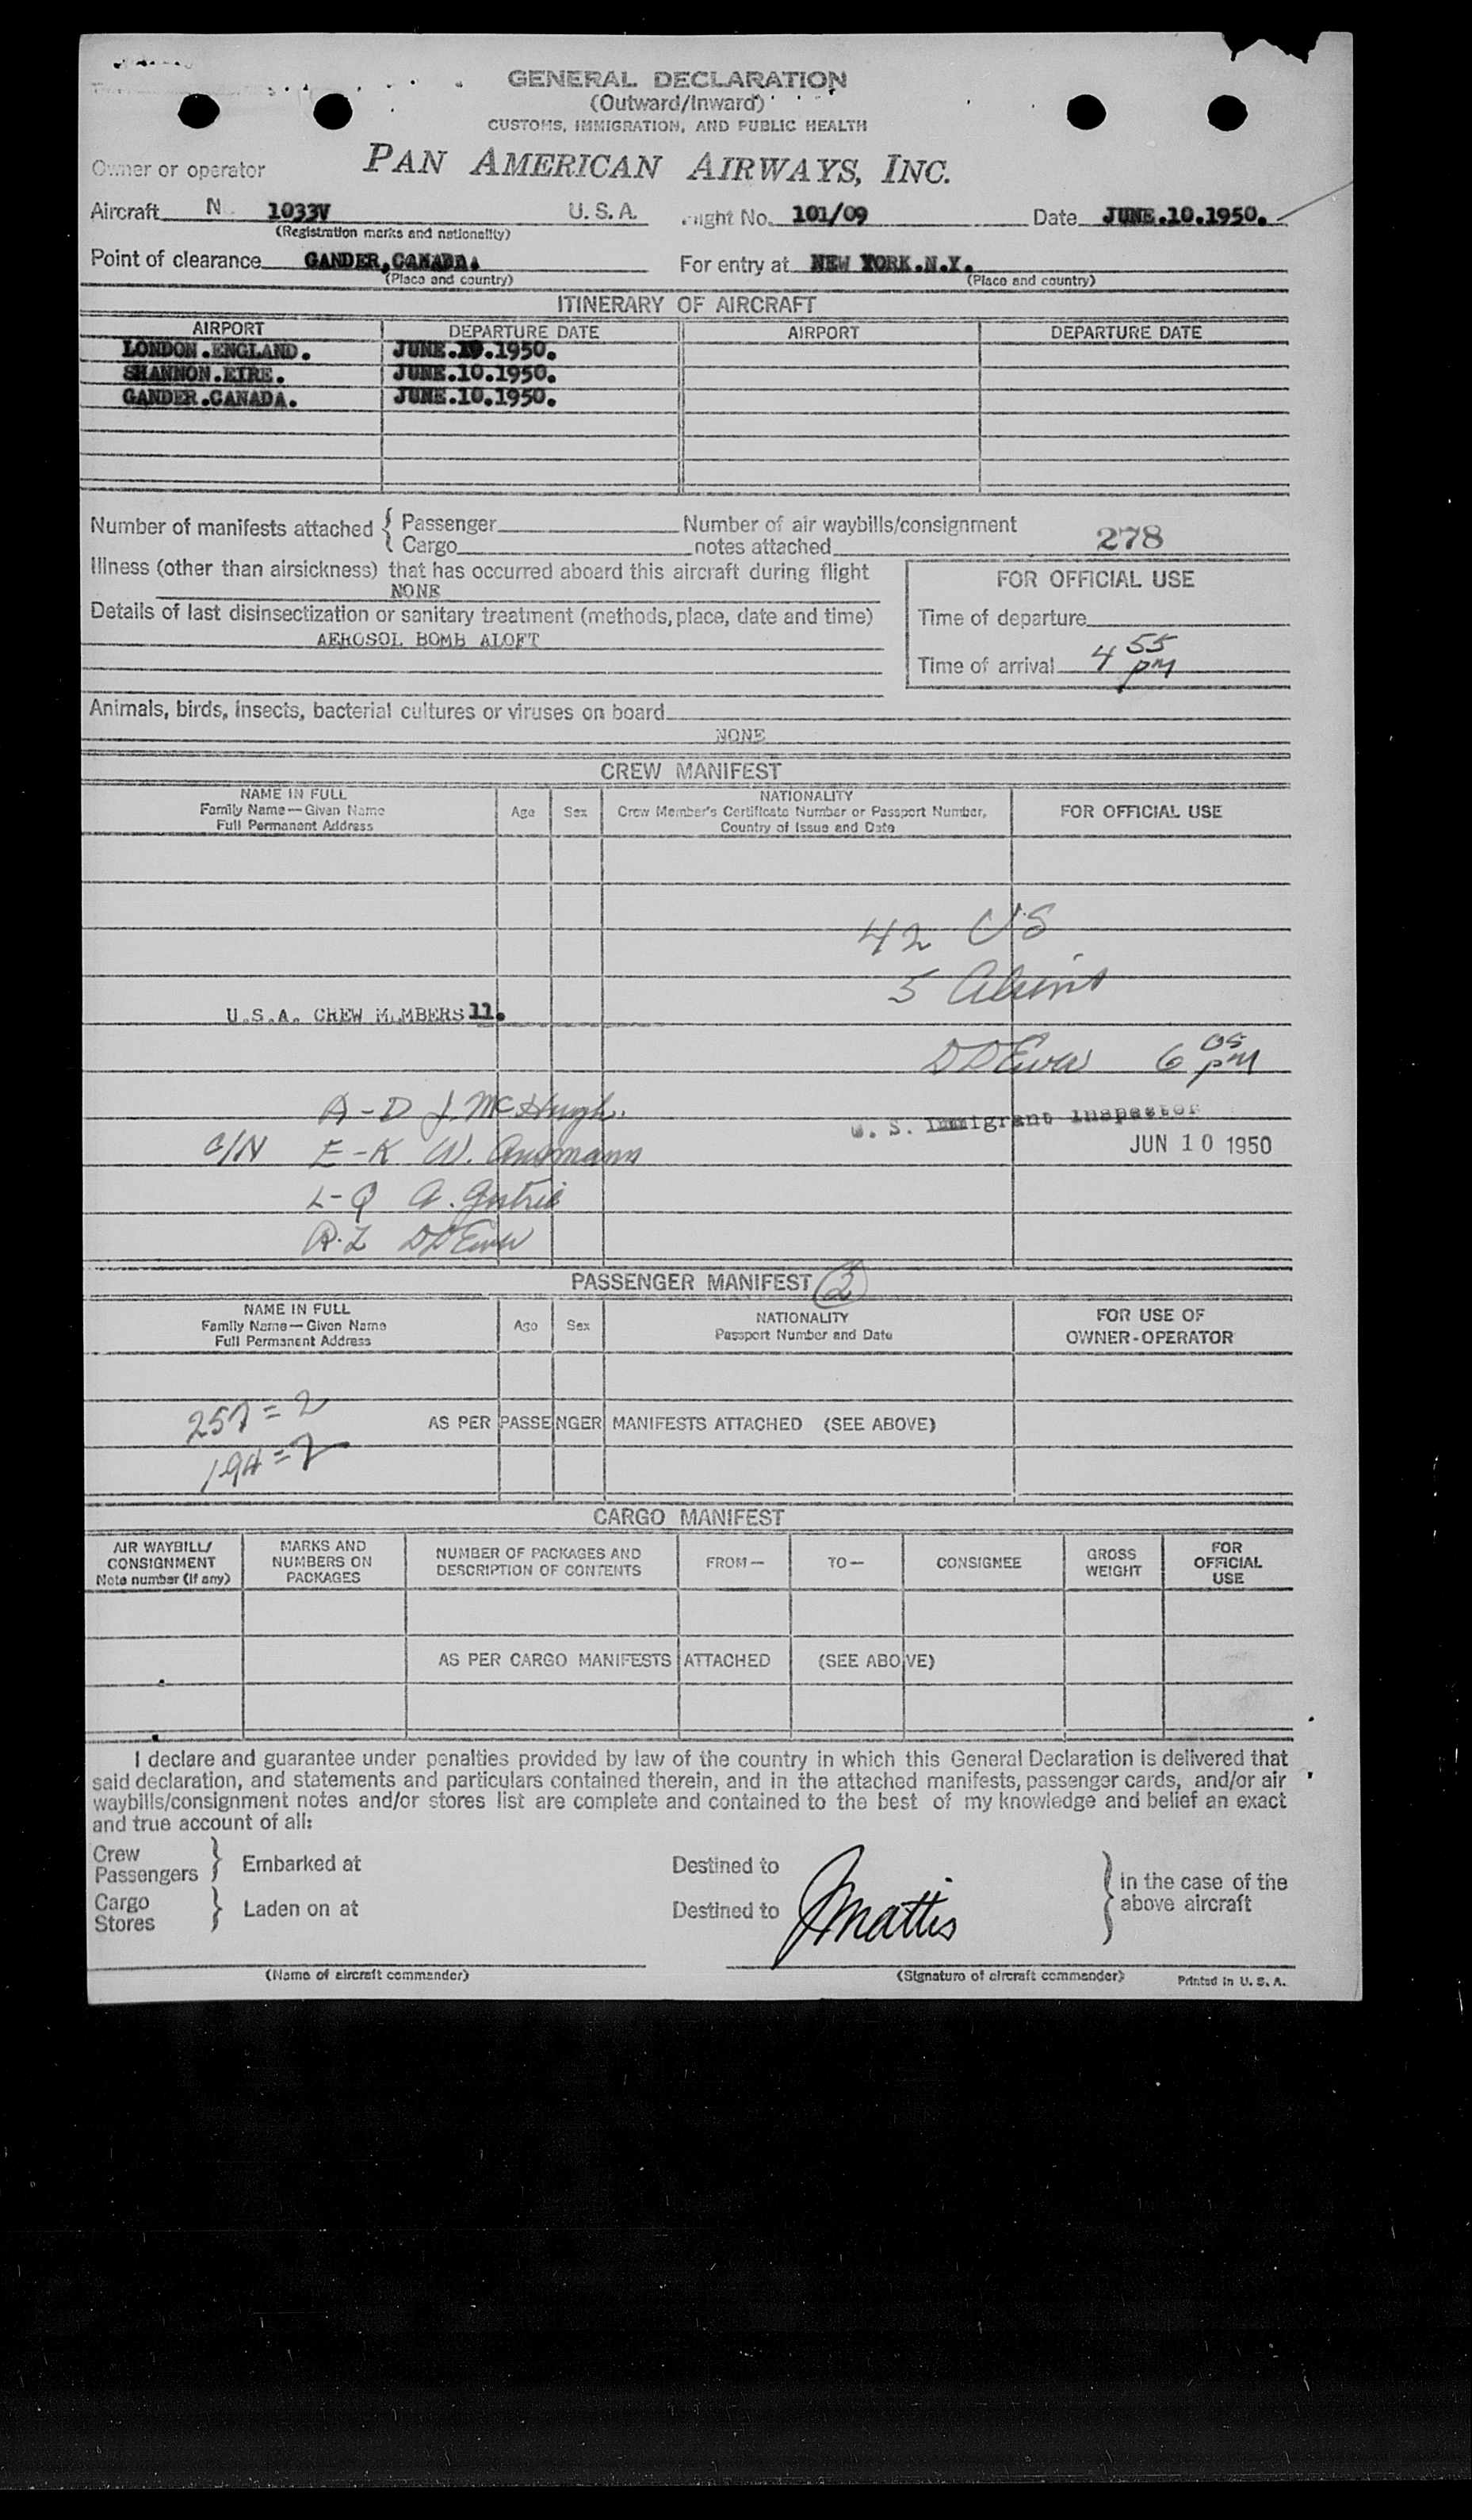 GENERAL DECLARATION
(Outward/Inward)
CUSTOMS, IMMIGRATION, AND PUBLIC HEALTH
Owner or operator PAN AMERICAN AIRWAYS, INC.
Aircraft N 1033V U. S. A. Flight No. 101/09 Date JUNE.10.1950.
(Registration marks and nationality)
Point of clearance GANDER,CANADA. For entry at NEW YORK.N.Y.
(Place and country) (Place and country)
ITINERARY OF AIRCRAFT
AIRPORT DEPARTURE DATE AIRPORT DEPARTURE DATE
LONDON.ENGLAND. JUNE.10.1950.
SHANNON.EIRE. JUNE.10.1950.
GANDER.CANADA. JUNE.10.1950.
Number of manifests attached { Passenger Number of air waybills/consignment 278
Cargo notes attached
Illness (other than airsickness) that has occurred aboard this aircraft during flight
NONE
FOR OFFICIAL USE
Details of last disinsectization or sanitary treatment (methods, place, date and time)
AEROSOL BOMB ALOFT
Time of departure
Time of arrival 4 55 PM
Animals, birds, insects, bacterial cultures or viruses on board
NONE
CREW MANIFEST
NAME IN FULL
Family Name—Given Name
Full Permanent Address
Age Sex
NATIONALITY
Crew Member's Certificate Number or Passport Number,
Country of Issue and Date
FOR OFFICIAL USE
42 US
5 Aliens
U.S.A. CREW MEMBERS 11.
6 05 PM
A-D J. McHugh.
U. S. Immigrant Inspector
C/N E-K W.
JUN 10 1950
L-Q A.
R-Z
PASSENGER MANIFEST 2
NAME IN FULL
Family Name—Given Name
Full Permanent Address
Age Sex
NATIONALITY
Passport Number and Date
FOR USE OF
OWNER-OPERATOR
257 = 2
AS PER PASSENGER MANIFESTS ATTACHED (SEE ABOVE)
194 = 2
CARGO MANIFEST
AIR WAYBILL/
CONSIGNMENT
Note number (if any)
MARKS AND
NUMBERS ON
PACKAGES
NUMBER OF PACKAGES AND
DESCRIPTION OF CONTENTS
FROM—
TO—
CONSIGNEE
GROSS
WEIGHT
FOR
OFFICIAL
USE
AS PER CARGO MANIFESTS ATTACHED (SEE ABOVE)
I declare and guarantee under penalties provided by law of the country in which this General Declaration is delivered that
said declaration, and statements and particulars contained therein, and in the attached manifests, passenger cards, and/or air
waybills/consignment notes and/or stores list are complete and contained to the best of my knowledge and belief an exact
and true account of all:
Crew
Passengers } Embarked at Destined to
Cargo
Stores } Laden on at Destined to
} in the case of the
above aircraft
JMattis
(Name of aircraft commander) (Signature of aircraft commander) Printed in U. S. A.